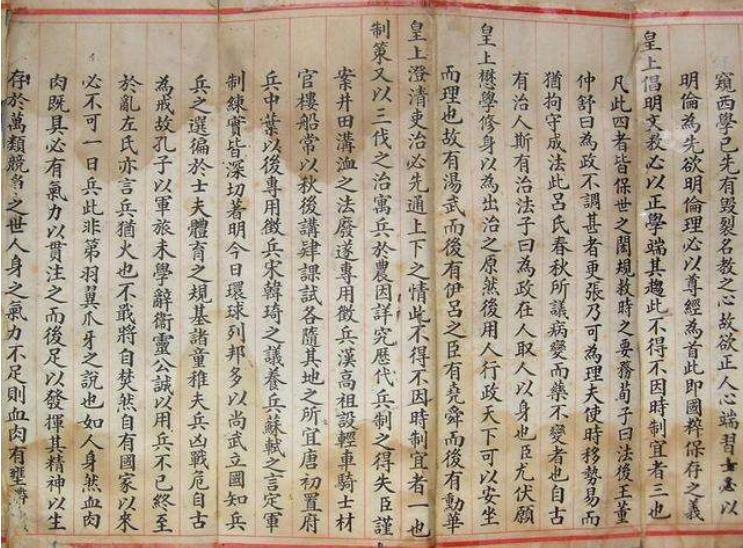 窺西學已先有毀裂名教之心故欲正人心端習士必以
明倫為先欲明倫理必以尊經為首此即國粹保存之義
皇上倡明文教必以正學端其趨此不得不因時制宜者三也
凡此四者皆保世之閎規救時之要務荀子曰法後王董
仲舒曰為政不調甚者更張乃可為理夫使時移勢易而
猶拘守成法此呂氏春秋所議病變而藥不變者也自古
有治人斯有治法子曰為政在人取人以身也臣尤伏願
皇上懋學修身以為出治之原然後用人行政天下可以安坐
而理也故有湯武而後有伊呂之臣有堯舜而後有勳華
皇上澄清吏治必先通上下之情此不得不因時制宜者一也
制策又以三代之治寓兵於農因詳究歷代兵制之得失臣謹
案井田溝洫之法廢遂專用徵兵漢高祖設輕車騎士材
官樓船常以秋後講肄課試各隨其地之所宜唐初置府
兵中葉以後專用徵兵宋韓琦之議養兵蘇軾之言定軍
制練實皆深切著明今日環球列邦多以尚武立國知兵
兵之選徧於士夫體育之規基諸童稚夫兵凶戰危自古
為戒故孔子以軍旅未學辭衛靈公誠以用兵不已終至
於亂左氏亦言兵猶火也不戢將自焚然自有國家以來
必不可一日兵此非第羽翼爪牙之說也如人身然血肉
肉既具必有氣力以貫注之而後足以發揮其精神以生
存於萬類競爭之世人身之氣力不足則血肉有壅滯